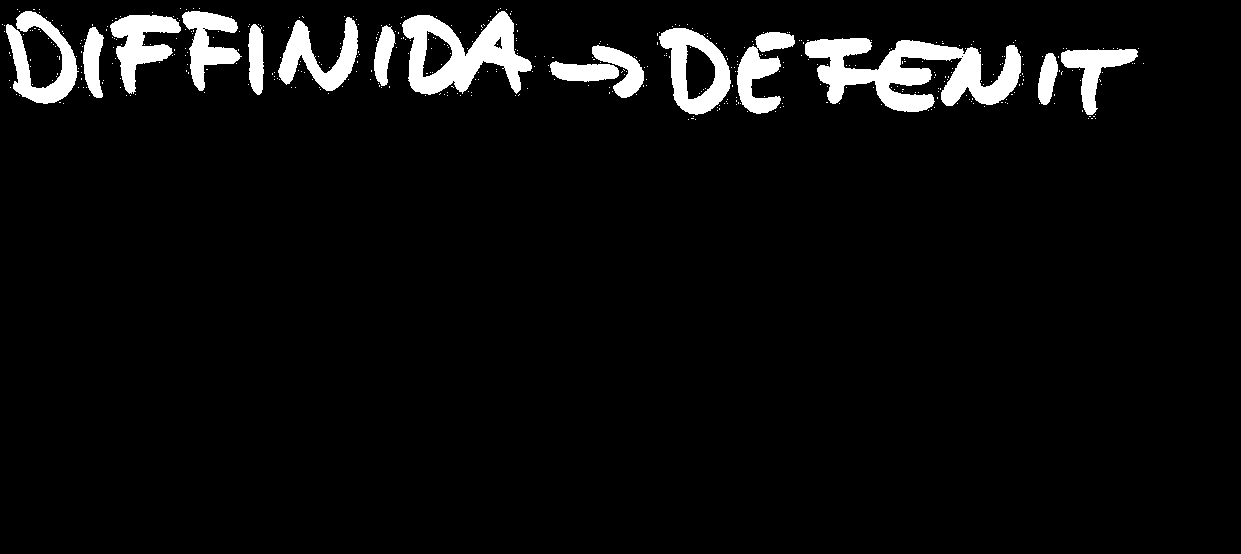 DIFFINIDA → DEFENIT